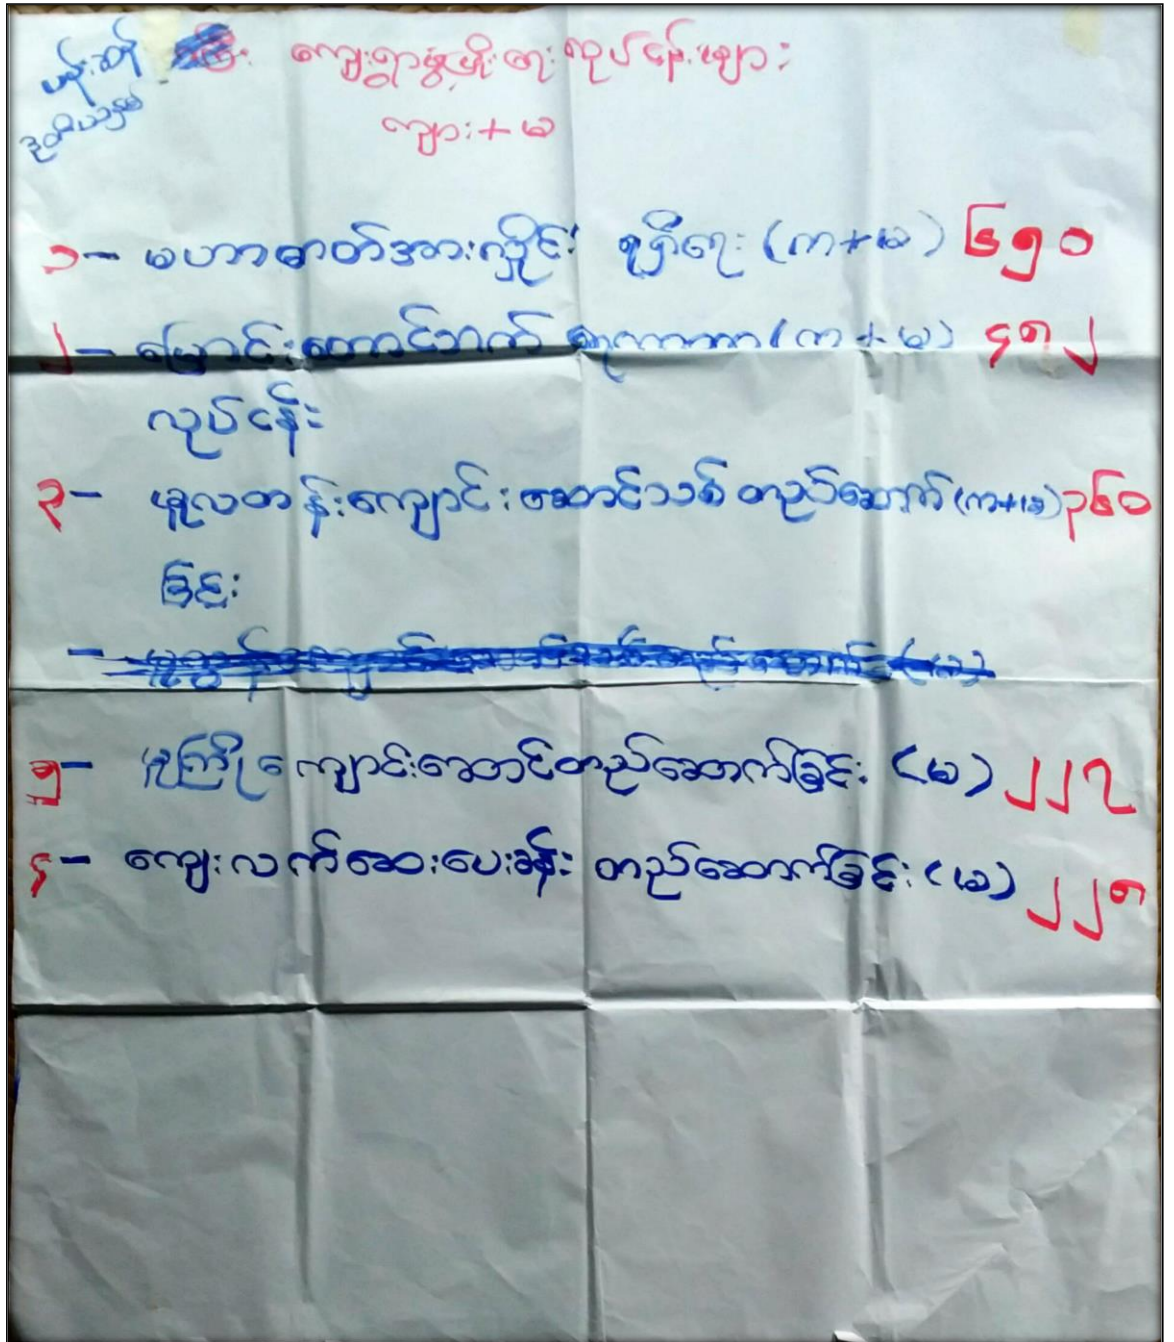 ပန်းဆန်
ကျေးရွာဖွံ့ဖြိုးရေးလုပ်ငန်းများ
ဒုတိယနှစ်
ကျား+မ
၁- မဟာဓာတ်အားလှိုင်း ရရှိရေး (က+မ) ၆၅၀
၂- မြောင်းတောင်ဘက် (က+မ) ၄၈၂
လုပ်ငန်း
၃- မူလတန်းကျောင်းဆောင်သစ် တည်ဆောက် (က+မ) ၃၆၀
ခြင်း
-
၅- မူကြိုကျောင်းဆောင်တည်ဆောက်ခြင်း (မ) ၂၂၇
၄- ကျေးလက်ဆေးပေးခန်း တည်ဆောက်ခြင်း (မ) ၂၂၈